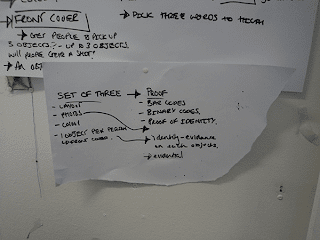 FRONT COVER
→ PICK THREE WORDS TO
→ GETS PEOPLE TO PICK UP
5 OBJECTS? - UP TO 3 OBJECTS.
WILL PEOPLE GIVE A SHIT?
→ AN
SET OF THREE → PROOF
- LAYOUT
- PHOTOS
- COLOUR
- 1 OBJECT PER PERSON
- BAR CODES
- BINARY CODES.
- PROOF OF IDENTITY.
→ identity - evidence
on each objects.
→ evidential